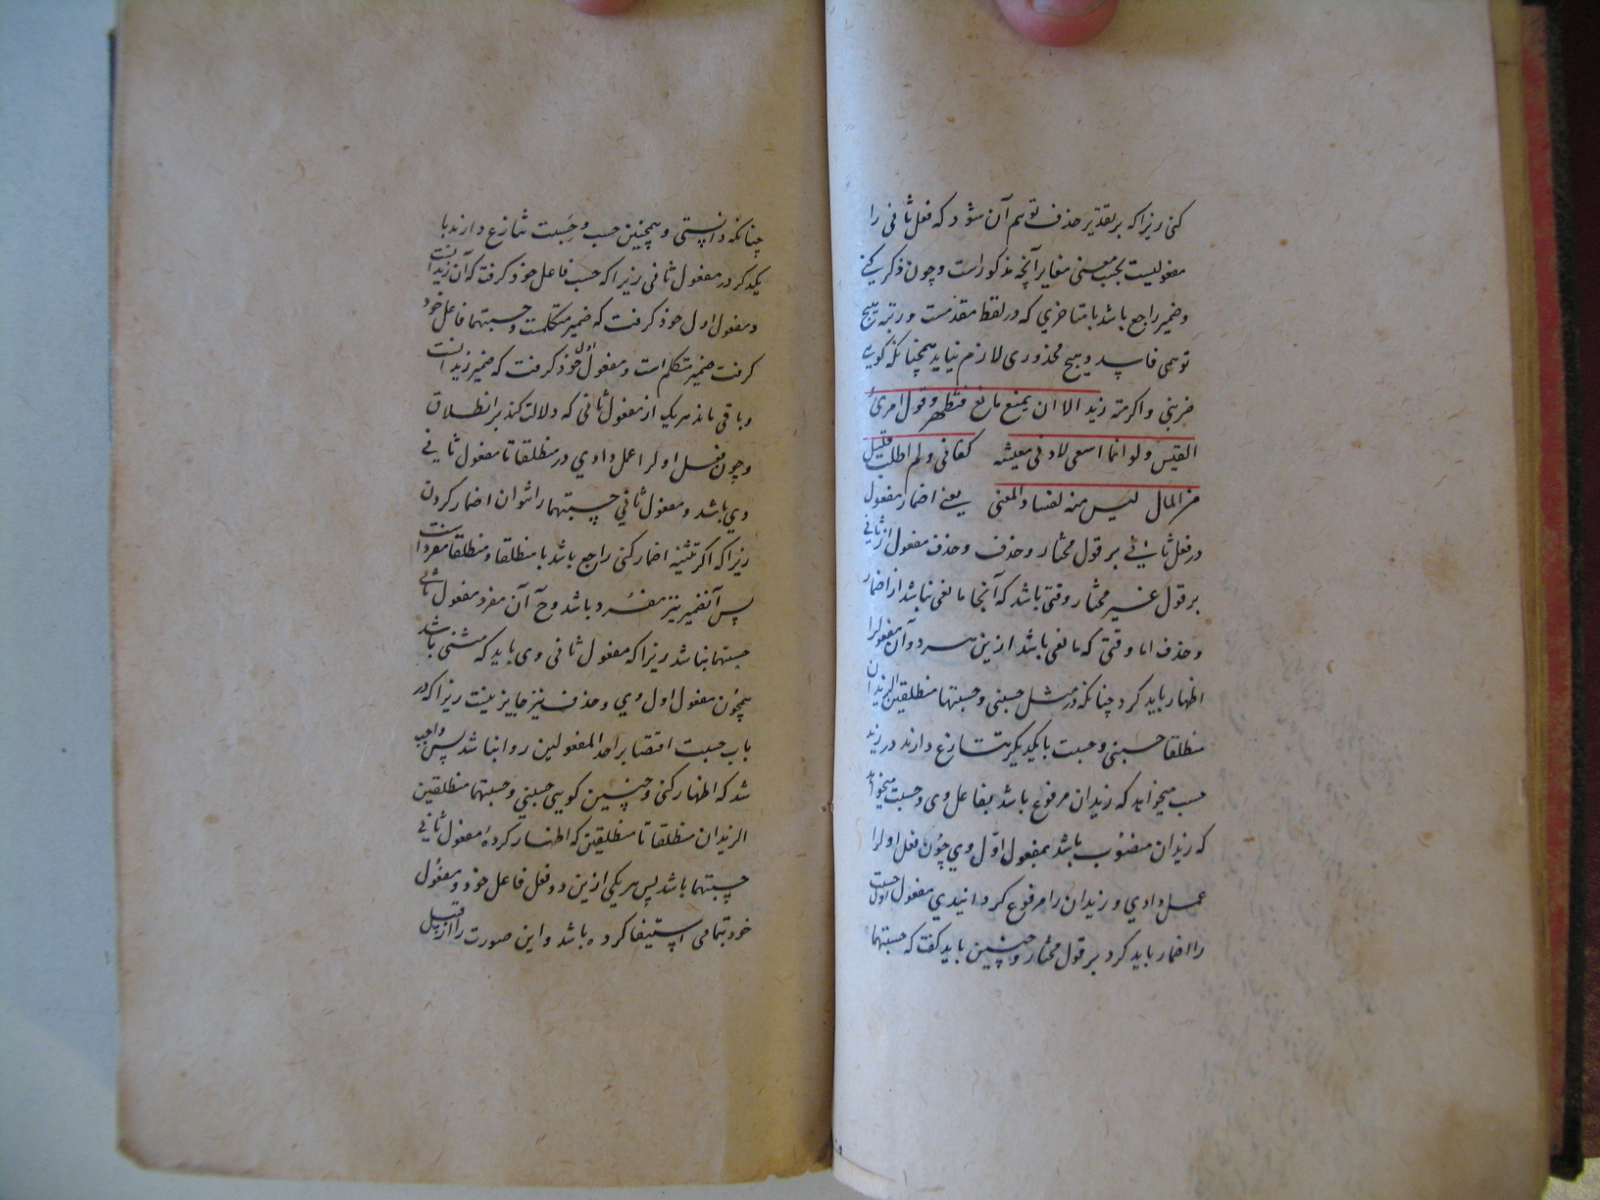 کنی زیرا که بر تقدیر حذف توهم آن شود که فعل ثانی را
مفعولیست بحسب معنی مغایر آنچه مذکور است و چون ذکر کنی
و ضمیر راجع باشد با متأخری که در لفظ مقدمست و رتبه هیچ
توهمی فاسد و هیچ محذوری لازم نیاید همچنانکه گویی
ضربنی واکرمته زید الا ان یمنع مانع فتظهر وقول امرئ
القیس ولو انما اسعی لادنی معیشه کفانی ولم اطلب قلیل
من المال لیس منه لفساد المعنی یعنی اضمار مفعول
در فعل ثانی بر قول مختار و حذف و حذف مفعول از ثانی
بر قول غیر مختار وقتی باشد که آنجا مانعی نباشد از اضمار
و حذف اما وقتی که مانعی باشد ازین هر دو آن مفعول را
اظهار باید کرد چنانکه در مثل حسبنی وحسبتهما منطلقین الزیدان
منطلقا حسبنی وحسبت با یکدیگر تنازع دارند در زید
حسب میخواهد که زیدان مرفوع باشد بفاعل وی وحسبت میخواهد
که زیدان منصوب باشد بمفعول اول وی چون فعل اول را
عمل دادی و زیدان را مرفوع گردانیدی مفعول اول حسبت
را اضمار باید کرد بر قول مختار و چنین باید گفت که حسبتهما
چنانکه دانستی و همچنین حسب وحَسِبت تنازع دارند با
یکدکر در مفعول ثانی زیرا که حسب فاعل خود گرفت که آن زیدانست
و مفعول اول خود گرفت که ضمیر متکلمست وحسبتهما فاعل خود
گرفت ضمیر متکلم است و مفعول اول خود گرفت که ضمیر زیدانست
و باقی ماند هر یک از مفعول ثانی که دلالت کند بر انطلاق
و چون فعل اول را عمل دادی در منطلقا تا مفعول ثانی
وی باشد و مفعول ثانی حسبتهما را نتوان اضمار کردن
زیرا که اگر تثنیه اضمار کنی راجع باشد با منطلقا و منطلقا مفردست
پس آنضمیر نیز مفرد باشد وح آن مفرد مفعول ثانی
حسبتهما نباشد زیرا که مفعول ثانی وی باید که مثنی باشد
همچون مفعول اول وی و حذف نیز جایز نیست زیرا که در
باب حسبت اقتصار بر احد المفعولین روا نباشد پس واجب
شد که اظهار کنی و چنین گویی حسبنی وحسبتهما منطلقین
الزیدان منطلقا تا منطلقین که اظهار کردهٔ مفعول ثانی
حسبتهما باشد پس هر یکی ازین دو فعل فاعل خود و مفعول
خود بتمامی استیفا کرده باشد و این صورت را از قبیل